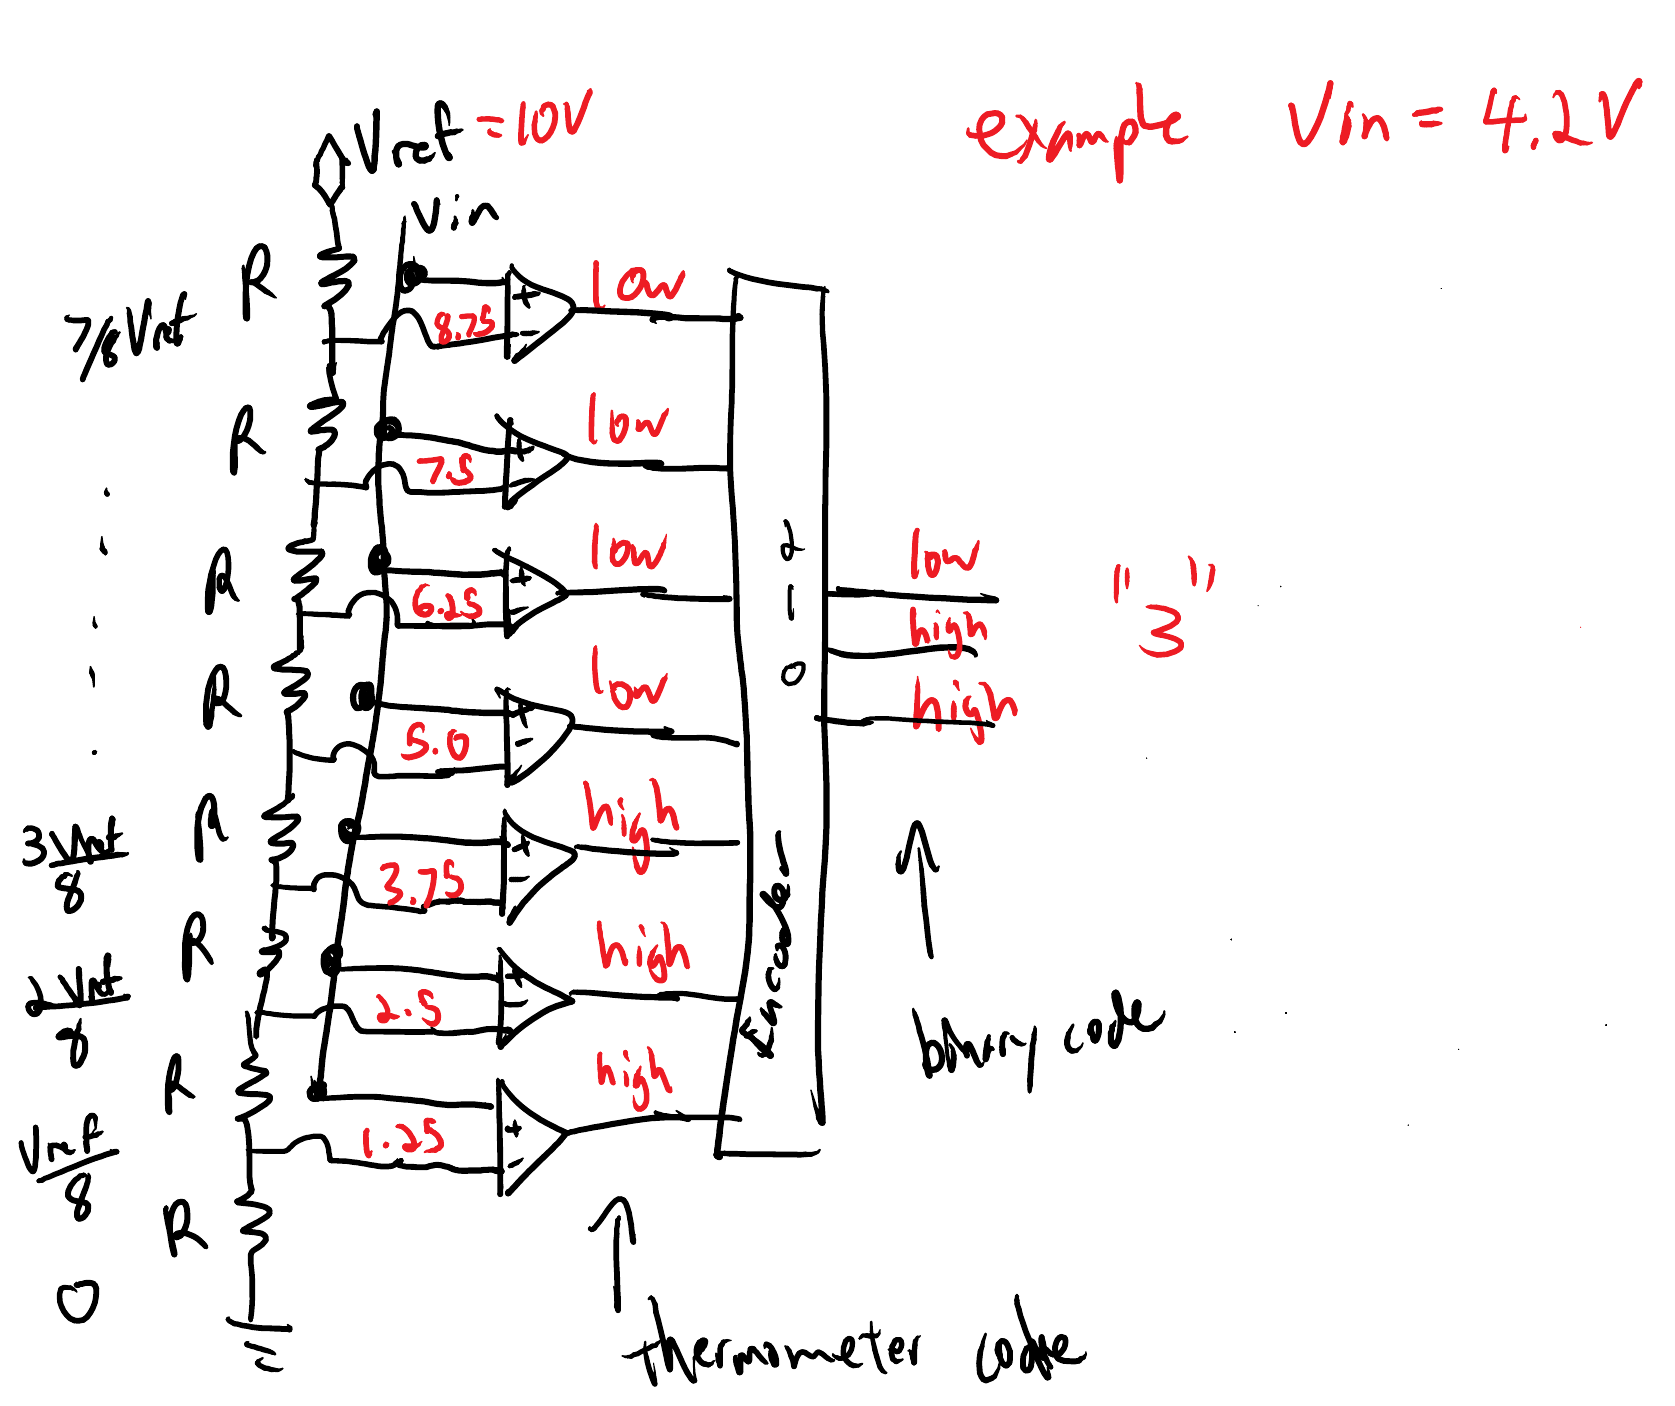 Vref = 10V
example Vin = 4.2V
Vin
R
low
+
8.75
-
7/8 Vref
R
low
+
7.5
-
R
low
+
6.25
-
2
1
0
low
high
high
"3"
R
low
+
5.0
-
R
high
+
3.75
-
3Vref
8
R
high
+
2.5
-
2Vref
8
Encoder
binary code
R
high
+
1.25
-
Vref
8
R
0
thermometer code